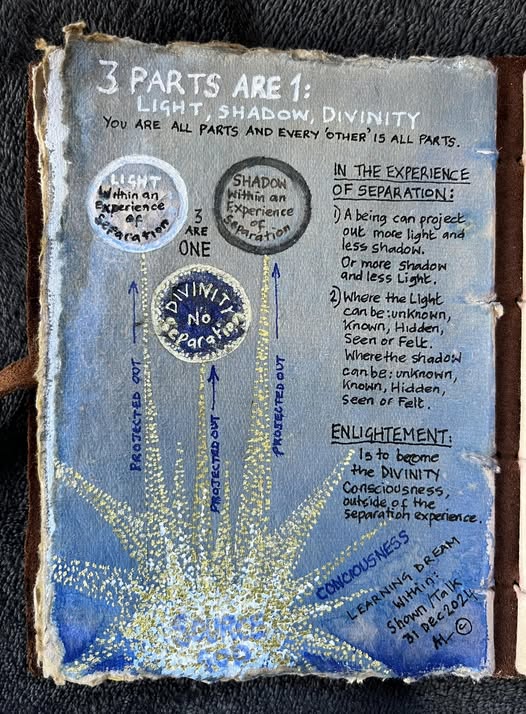 3 PARTS ARE 1:
LIGHT, SHADOW, DIVINITY
YOU ARE ALL PARTS AND EVERY 'OTHER' IS ALL PARTS.
LIGHT
Within an
Experience
of
Separation
SHADOW
Within an
Experience
of
Separation
3
ARE
ONE
DIVINITY
No
Separation
PROJECTED OUT
PROJECTED OUT
PROJECTED OUT
IN THE EXPERIENCE
OF SEPARATION:
1) A being can project
out more light and
less shadow.
Or more shadow
and less Light.
2) Where the Light
can be: unknown,
Known, Hidden,
Seen or Felt.
Where the shadow
can be: unknown,
Known, Hidden,
Seen or Felt.
ENLIGTEMENT:
Is to become
the DIVINITY
Consciousness,
outside of the
separation experience.
CONCIOUSNESS
SOURCE
GOD
LEARNING DREAM
Within:
Shown/Talk
31 DEC 2024
AL ©